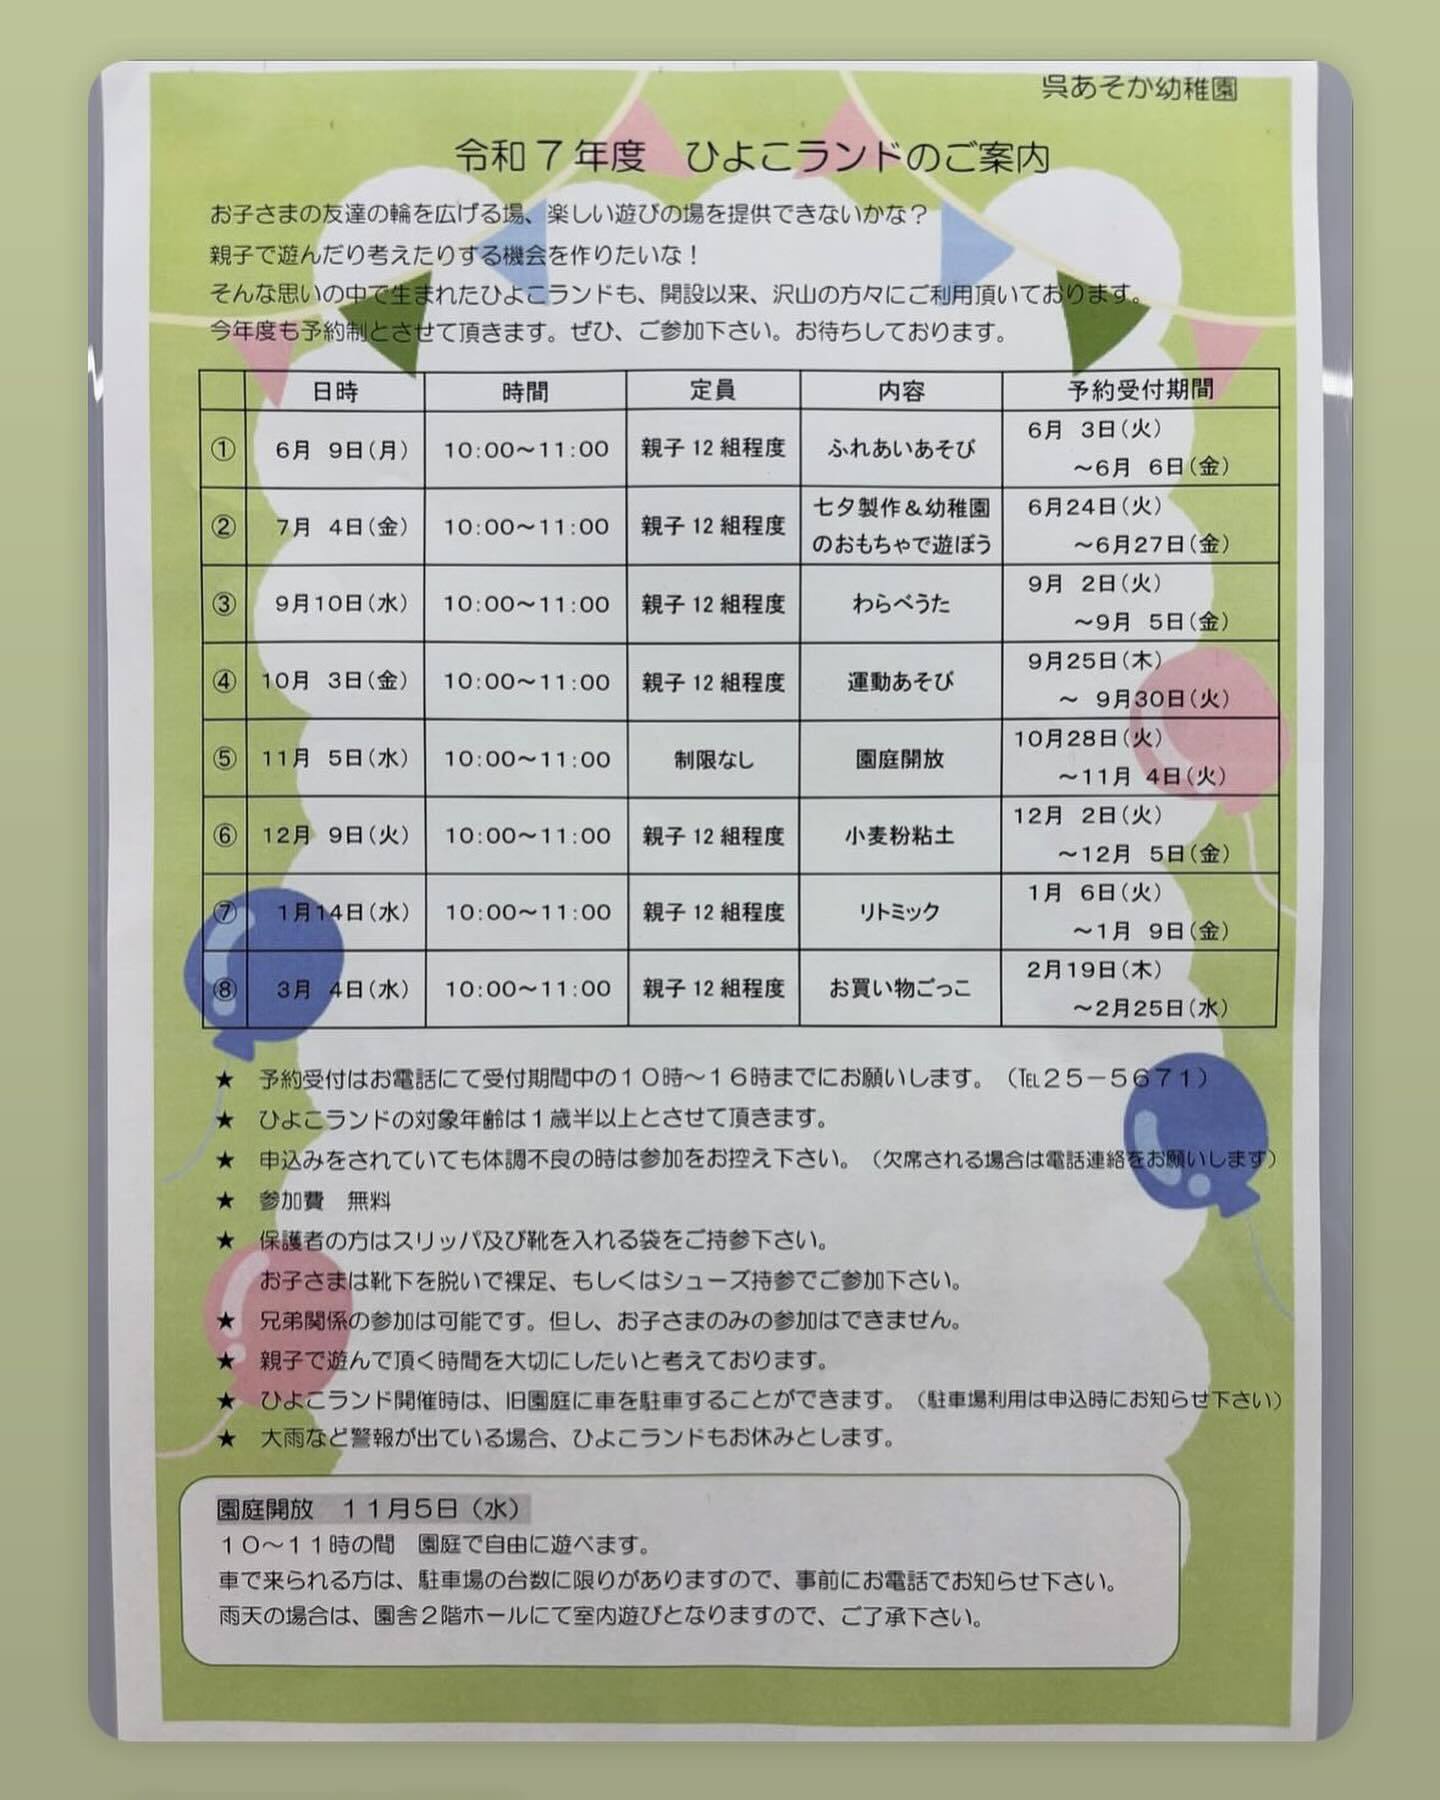 呉あそか幼稚園
令和7年度　ひよこランドのご案内
お子さまの友達の輪を広げる場、楽しい遊びの場を提供できないかな？
親子で遊んだり考えたりする機会を作りたいな！
そんな思いの中で生まれたひよこランドも、開設以来、沢山の方々にご利用頂いております。
今年度も予約制とさせて頂きます。ぜひ、ご参加下さい。お待ちしております。
日時　時間　定員　内容　予約受付期間
① 6月 9日(月) 10:00～11:00 親子12組程度 ふれあいあそび 6月 3日(火)
～6月 6日(金)
② 7月 4日(金) 10:00～11:00 親子12組程度 七夕製作＆幼稚園 6月24日(火)
のおもちゃで遊ぼう ～6月27日(金)
③ 9月10日(水) 10:00～11:00 親子12組程度 わらべうた 9月 2日(火)
～9月 5日(金)
④ 10月 3日(金) 10:00～11:00 親子12組程度 運動あそび 9月25日(木)
～ 9月30日(火)
⑤ 11月 5日(水) 10:00～11:00 制限なし 園庭開放 10月28日(火)
～11月 4日(火)
⑥ 12月 9日(火) 10:00～11:00 親子12組程度 小麦粉粘土 12月 2日(火)
～12月 5日(金)
⑦ 1月14日(水) 10:00～11:00 親子12組程度 リトミック 1月 6日(火)
～1月 9日(金)
⑧ 3月 4日(水) 10:00～11:00 親子12組程度 お買い物ごっこ 2月19日(木)
～2月25日(水)
★　予約受付はお電話にて受付期間中の１０時～１６時までにお願いします。（℡２５－５６７１）
★　ひよこランドの対象年齢は１歳半以上とさせて頂きます。
★　申込みをされていても体調不良の時は参加をお控え下さい。（欠席される場合は電話連絡をお願いします）
★　参加費　無料
★　保護者の方はスリッパ及び靴を入れる袋をご持参下さい。
お子さまは靴下を脱いで裸足、もしくはシューズ持参でご参加下さい。
★　兄弟関係の参加は可能です。但し、お子さまのみの参加はできません。
★　親子で遊んで頂く時間を大切にしたいと考えております。
★　ひよこランド開催時は、旧園庭に車を駐車することができます。（駐車場利用は申込時にお知らせ下さい）
★　大雨など警報が出ている場合、ひよこランドもお休みとします。
園庭開放　１１月５日（水）
１０～１１時の間　園庭で自由に遊べます。
車で来られる方は、駐車場の台数に限りがありますので、事前にお電話でお知らせ下さい。
雨天の場合は、園舎２階ホールにて室内遊びとなりますので、ご了承下さい。